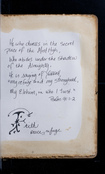 He who dwells in the secret
place of the Most High,
Who abides under the shadow
of the Almighty,
He is saying of
my refuge and my stronghold,
My Elohim, in who I trust"
Psalm 91:1-2